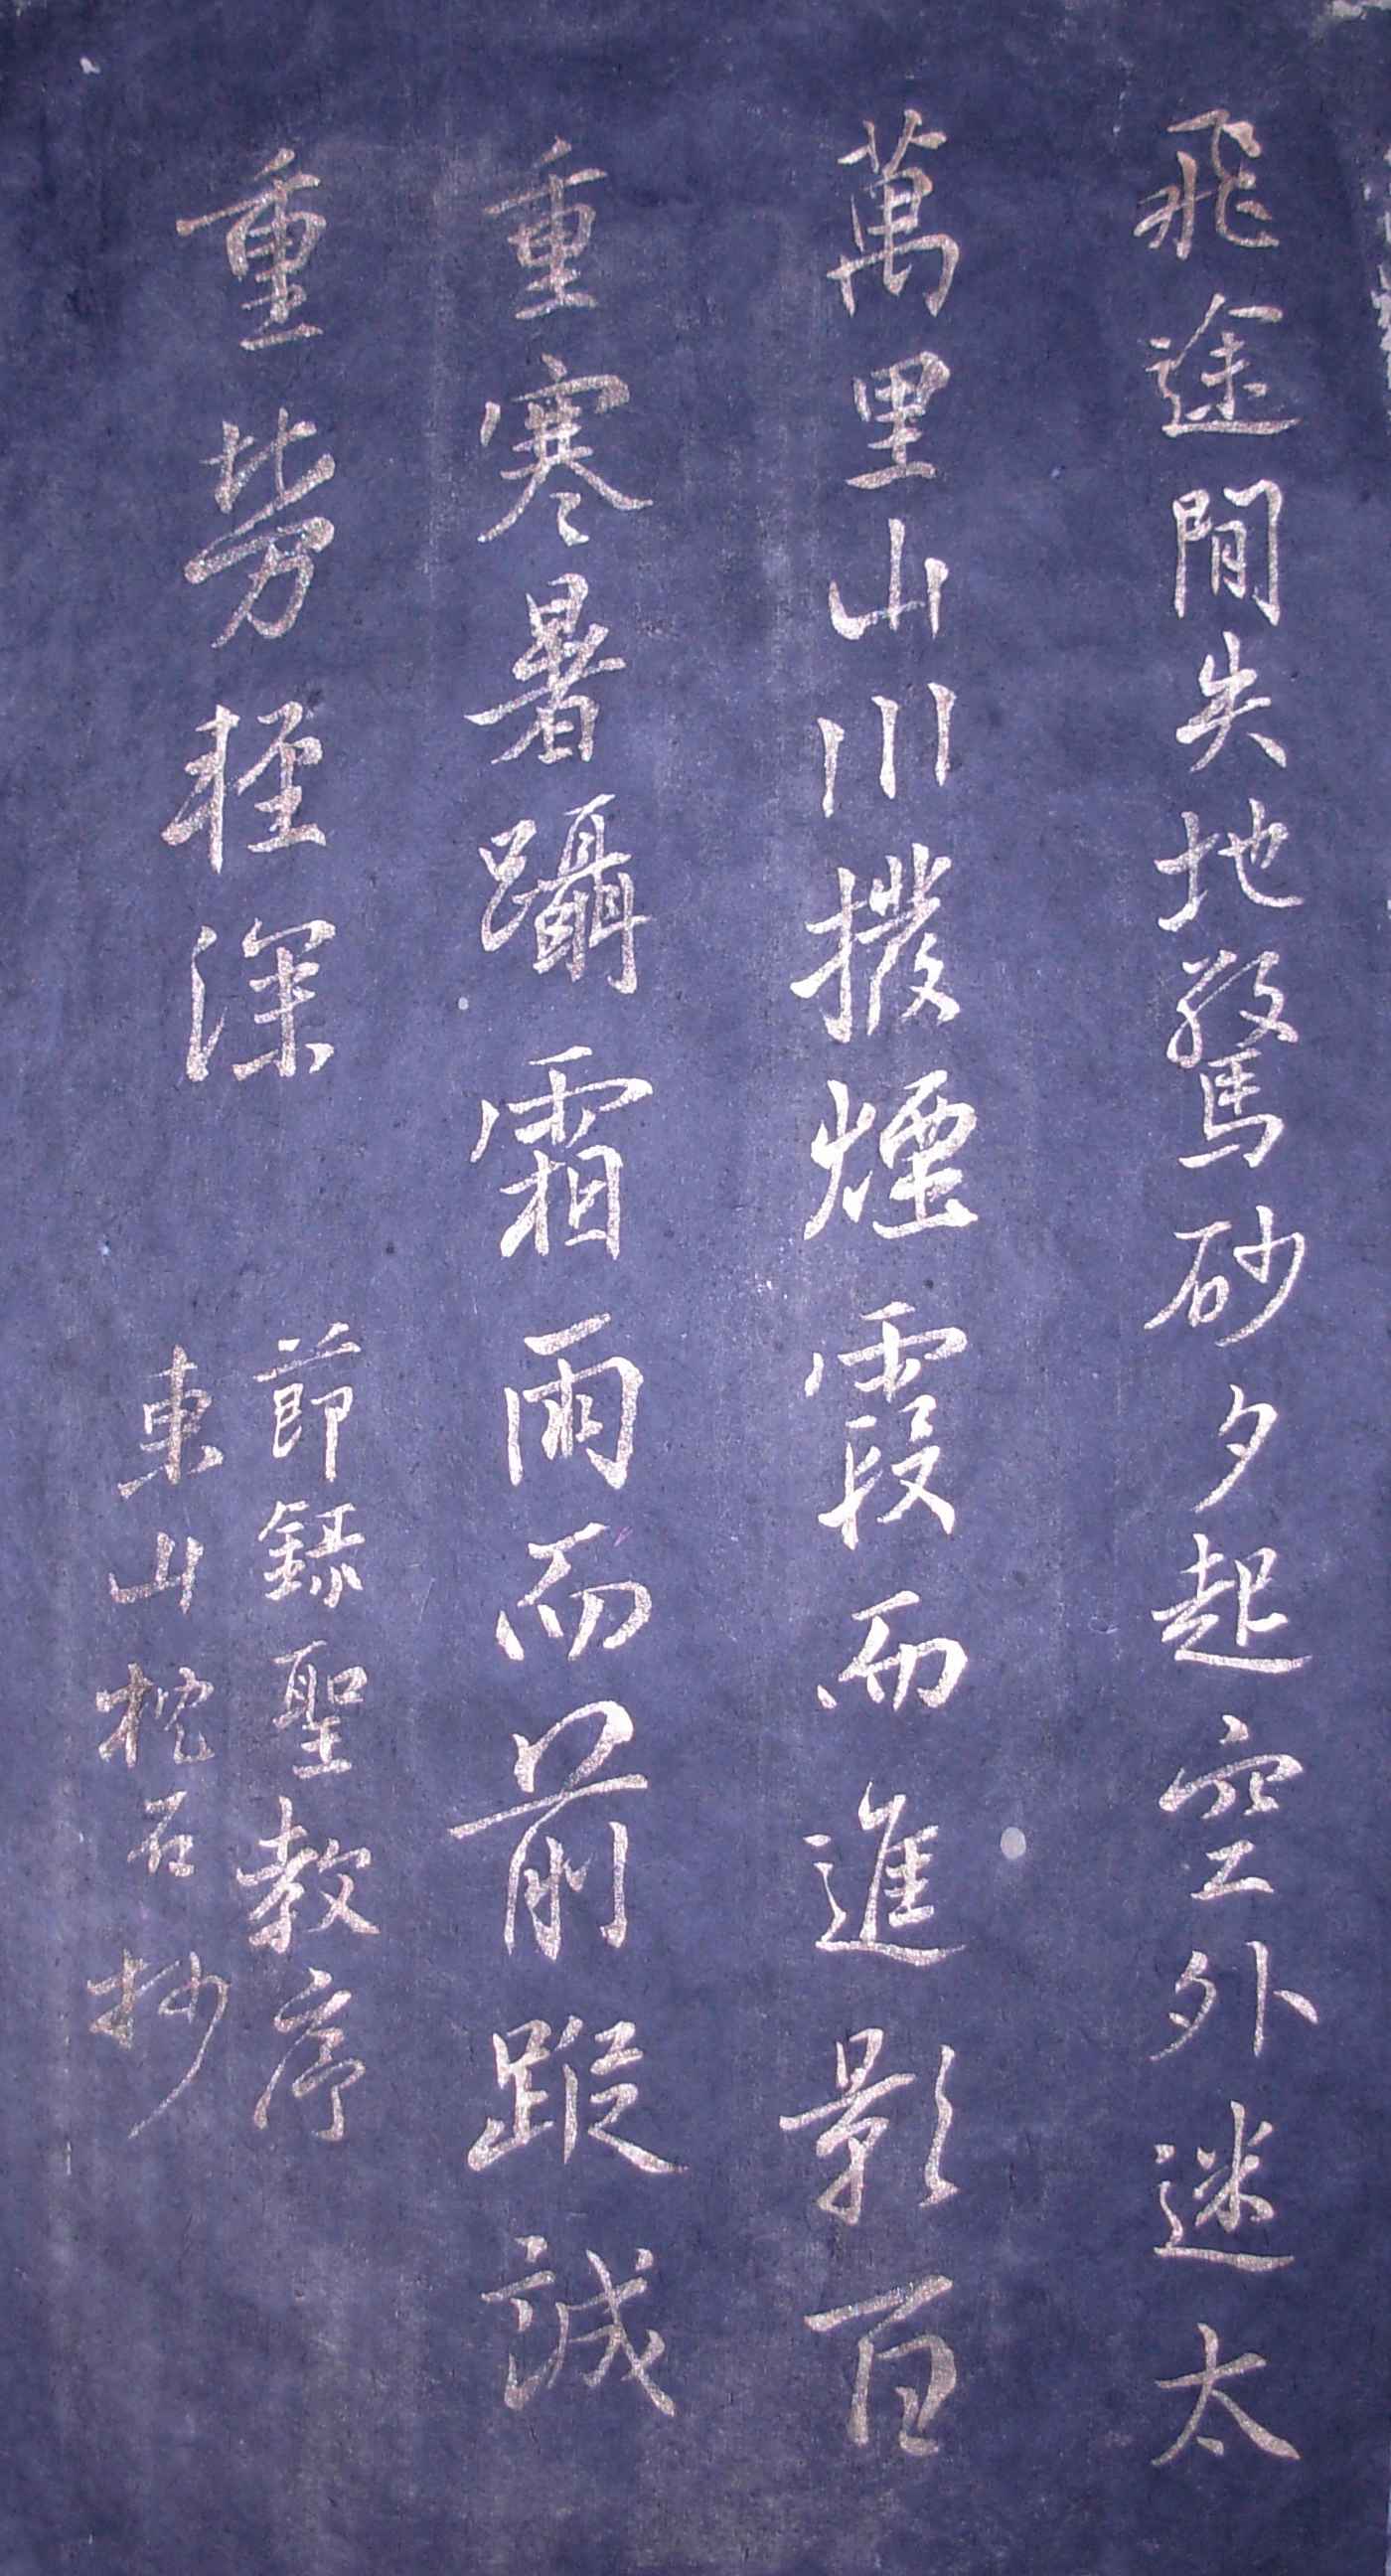 飛途閒失地驚砂夕起空外迷太
萬里山川撥煙霞而進影百
重寒暑躡霜雨而前蹤誠
重勞輕深
節錄聖教序
東山枕石抄